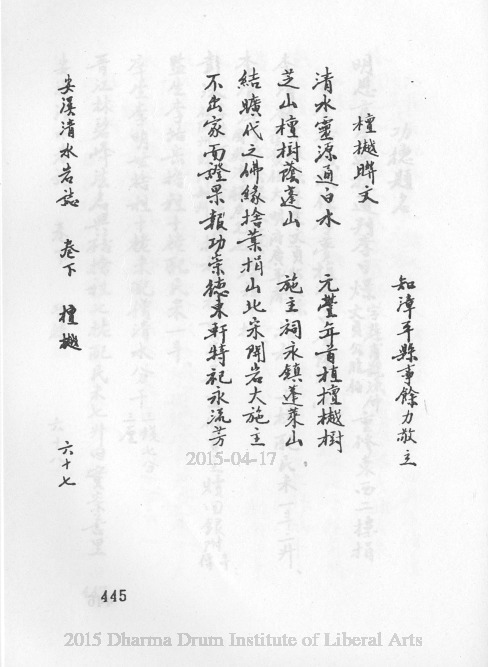 知漳平縣事餘力敬立
檀樾聯文
清水靈源通白水　元豐年首植檀樾樹
芝山檀樹蔭蓬山　施主祠永鎮蓬萊山
結曠代之佛緣捨業捐山北宋開岩大施主
不出家而證果報功崇德東軒特祀永流芳
安溪清水岩誌　卷下　檀樾　六十七
2015-04-17
445
2015 Dharma Drum Institute of Liberal Arts